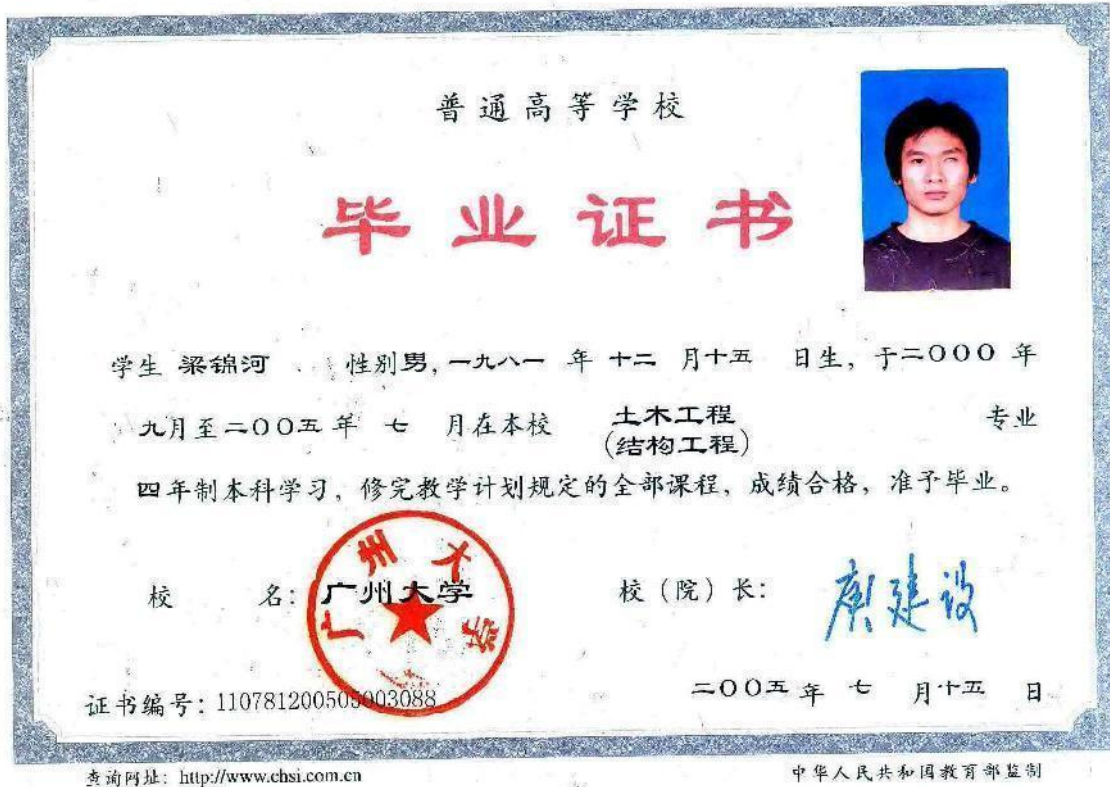 普通高等学校
毕业证书
学生 梁锦河 性别男,一九八一 年 十二 月十五 日生，于二〇〇〇 年
九月至二〇〇五年 七 月在本校 土木工程 (结构工程) 专业
四年制本科学习，修完教学计划规定的全部课程，成绩合格，准予毕业。
校 名：广州大学
校（院）长：庾建设
广州大学
证书编号：110781200505003088
二〇〇五 年 七 月十五 日
查询网址：http://www.chsi.com.cn
中华人民共和国教育部监制